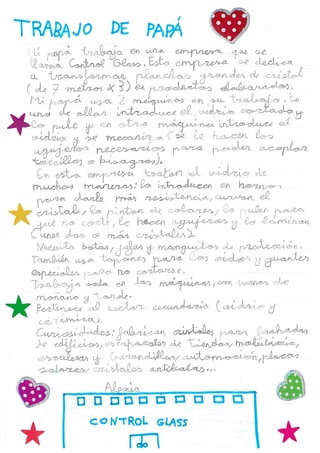 TRABAJO DE PAPÁ
Mi papá trabaja en una empresa que se
llama Control Glass. Esta empresa se dedica
a transformar planchas grandes de cristal
(de 7 metros x 3) en productos elaborados.
Mi papá usa 2 máquinas en su trabajo. En
una de ellas introduce el vidrio cortado y
lo pule y en otra máquina introduce el
vidrio y se mecaniza (se le hacen los
agujeros necesarios para poder acoplar
tornillos o bisagras).
En esta empresa tratan el vidrio de
muchas maneras: lo introducen en hornos
para darle más resistencia, curvan el
cristal, lo pintan de colores, lo pulen para
que no corte, le hacen agujeros y lo laminan
(unen dos o más cristales).
Necesita botas, gafas y manguitos de protección.
También usa tapones para los oídos y guantes
especiales para no cortarse.
Trabaja solo en las máquinas, con turnos de
mañana y tarde.
Pertenece al sector secundario (vidrio y
cerámica).
Curiosidades: fabrican cristales para fachadas
de edificios, escaparates de tiendas, mobiliario,
escaleras y barandillas, automoción, placas
solares, cristales antibalas...
Alexia
CONTROL GLASS